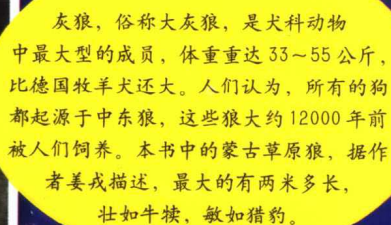 灰狼，俗称大灰狼，是犬科动物
中最大型的成员，体重重达33～55公斤，
比德国牧羊犬还大。人们认为，所有的狗
都起源于中东狼，这些狼大约12000年前
被人们饲养。本书中的蒙古草原狼，据作
者姜戎描述，最大的有两米多长，
壮如牛犊，敏如猎豹。